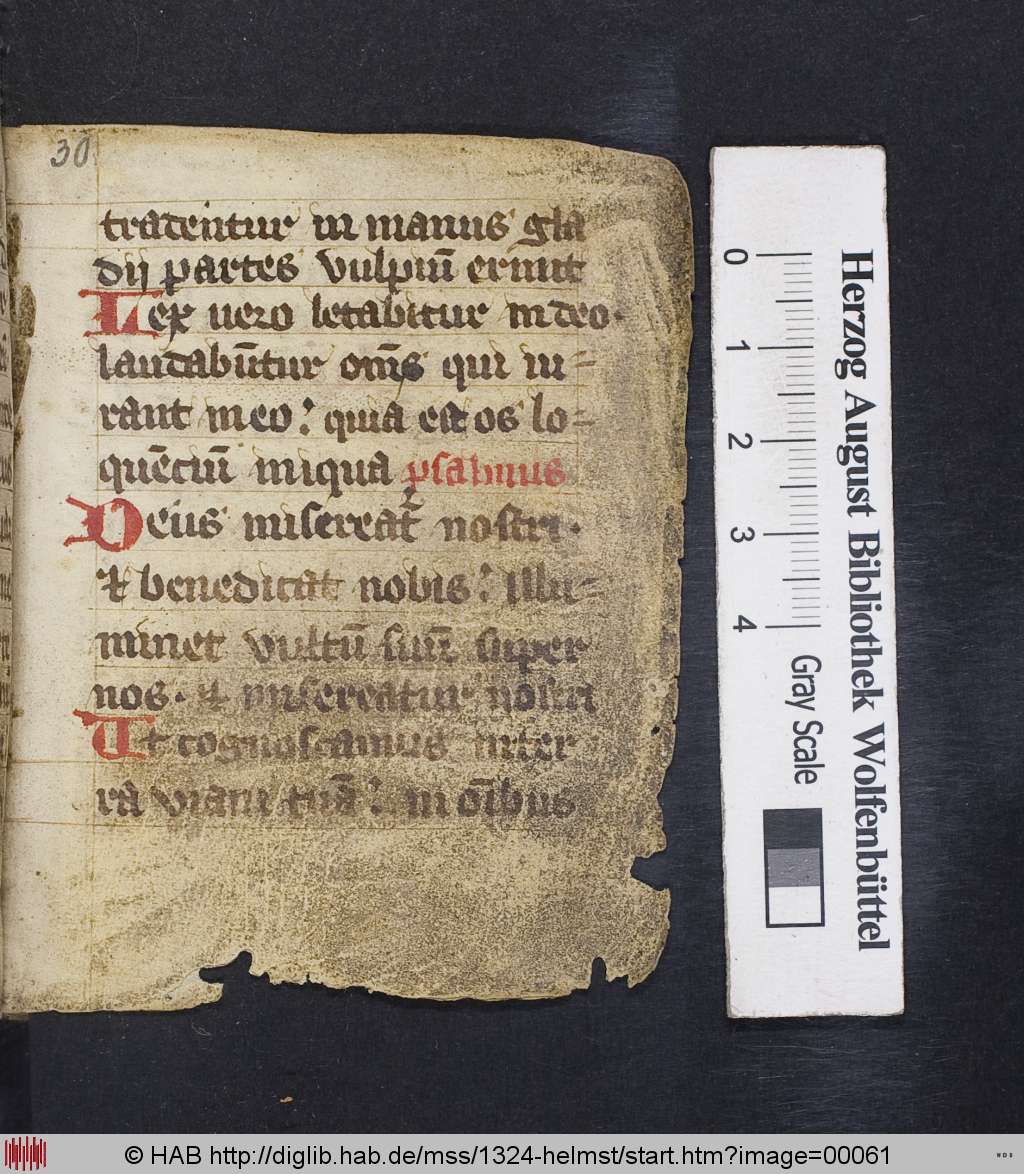 30
tradentur in manus gla
dij partes vulpiū erunt
Lex uero letabitur in deo·
laudabūtur om̄s qui iu-
rant in eo: quia est os lo-
quētiū iniqua psalmus
Deus misereat̉ nostri·
⁊ benedicat nobis: Illu-
minet vultū suū super
nos· ⁊ misereatur nostri
Ut cognoscamus in ter
ra viam tuā: in oībus
0 1 2 3 4
Gray Scale
Herzog August Bibliothek Wolfenbüttel
© HAB http://diglib.hab.de/mss/1324-helmst/start.htm?image=00061
WDB